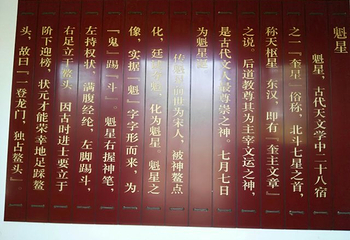 魁星
魁星，古代天文学中二十八宿
之一「奎星」俗称，北斗七星之首，
称天枢星，东汉，即有「奎主文章」
之说。后道教尊其为主宰文运之神，
是古代文人最尊崇之神。七月七日
为魁星
魁星前世为宋人，被神鳌点
化，化为魁星。魁星之
像，实据「魁」字字形而来，为
「鬼」踢「斗」。魁星右握神笔，
左持权状，满腹经纶，左脚踢斗，
右足立于鳌头，因古时进士要立于
阶下迎榜，状元才能荣幸地足踩鳌
头，故曰「一登龙门，独占鳌头」